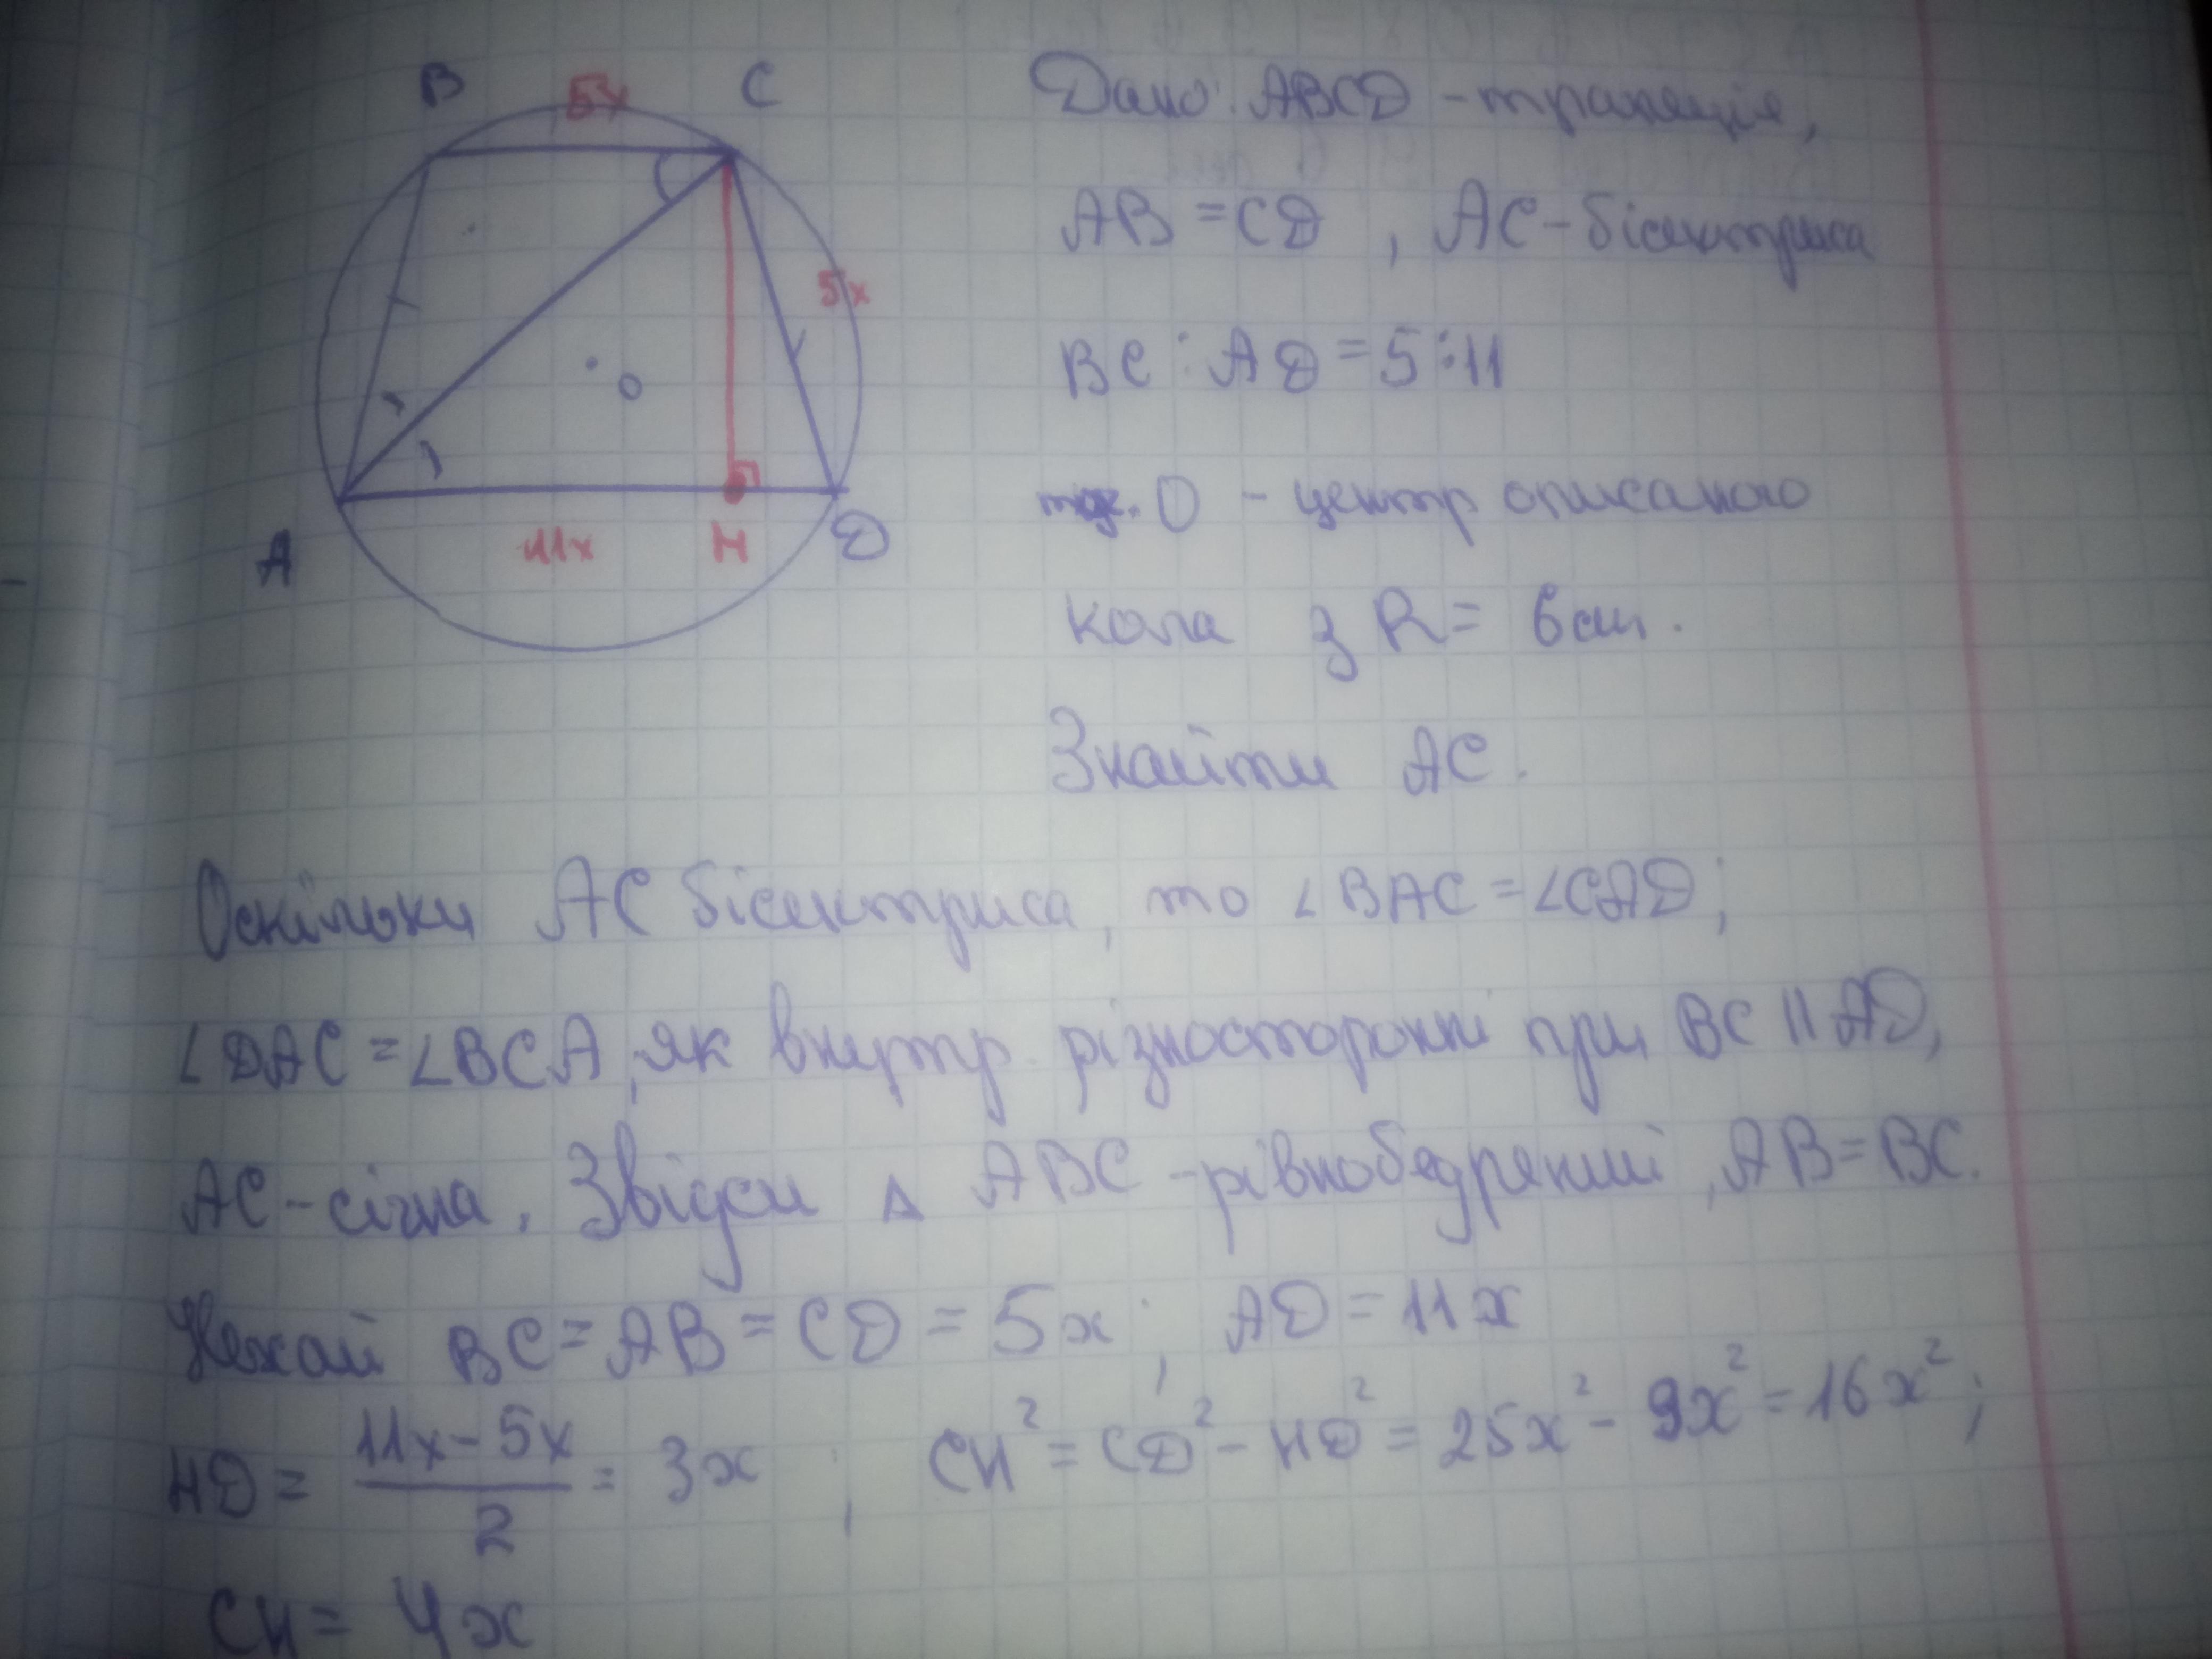 B 5x C
5x
O
A 11x H D
Дано: ABCD - трапеція,
AB = CD , AC - бісектриса
BC : AD = 5 : 11
O - центр описаного
кола з R = 6 см.
Знайти AC.
Оскільки AC бісектриса, то ∠BAC = ∠CAD;
∠DAC = ∠BCA, як внутр. різносторонні при BC || AD,
AC - січна. Звідси Δ ABC - рівнобедрений, AB = BC.
Нехай BC = AB = CD = 5x ; AD = 11x
HD = (11x - 5x)/2 = 3x ; CH² = CD² - HD² = 25x² - 9x² = 16x²;
CH = 4x